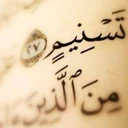 تَسْنِيمٍ ٢٧
مِنَ ٱلَّذِينَ